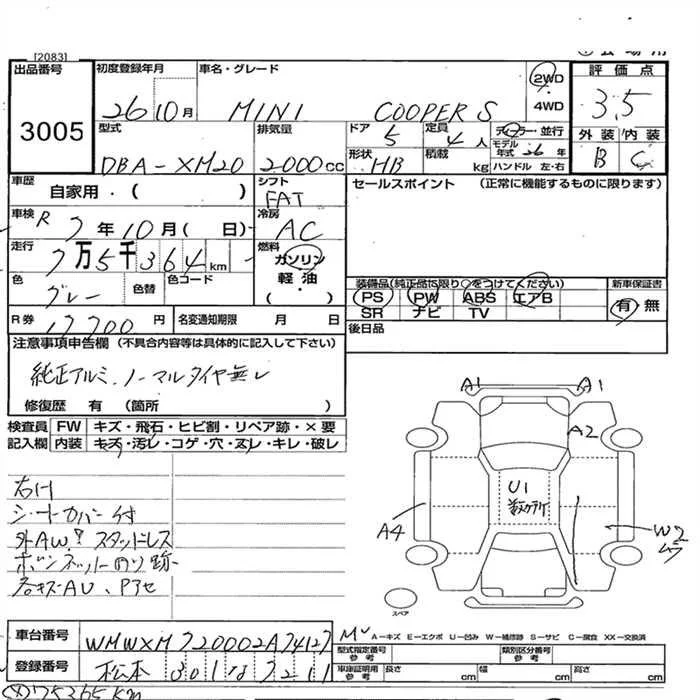 [2083]
出品番号
3005
初度登録年月
26 10月
車名・グレード
MINI COOPER S
2WD
4WD
評価点
3.5
外装 内装
B C
型式
DBA-XM20
排気量
2000cc
ドア
5
定員
4人
ディーラー・並行
モデル年式 26年
形状
HB
積載
kg
ハンドル 左・右
車歴
自家用・( )
シフト
FAT
セールスポイント (正常に機能するものに限ります)
車検
R 7年10月( 日)
冷房
AC
走行
7万5千364km
燃料
ガソリン
軽・油
( )
色
グレー
色替
色コード
装備品(純正品に限り○をつけてください)
新車保証書
PS PW ABS エアB
SR ナビ TV
有 無
R券
17700円
名変通知期限 月 日
後日品
注意事項申告欄 (不具合内容等は具体的に記入して下さい)
純正アルミ、ノーマルタイヤ無し
修復歴 有 (箇所 )
検査員記入欄
FW キズ・飛石・ヒビ割・リペア跡・×要
内装 キズ・汚レ・コゲ・穴・スレ・キレ・破レ
右H
シートカバー付
外AW.? スタッドレス
ボンネット 跡
各キズAU、
A1 A1
A2
U1
A4
W2
スペア
車台番号
WMWXM720002A74127
登録番号
松本 301 な 7211
A-キズ E-エクボ U-凹み W-補修跡 S-サビ C-腐食 XX-交換済
型式指定番号 参考
類別区分番号 参考
車庫証明用 参考
長さ cm
幅 cm
高さ cm
75365km